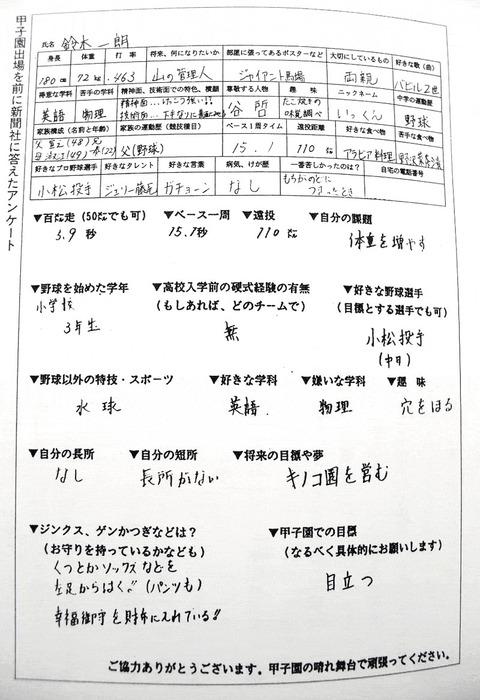 甲子園出場を前に新聞社に答えたアンケート
氏名 鈴木一朗
身長 体重 打率 将来、何になりたいか 部屋に張ってあるポスターなど 大切にしているもの 好きな歌(曲)
180cm 72kg .463 山の管理人 ジャイアント馬場 両親 バビル2世
得意な学科 苦手の学科 精神面、技術面での特色、横顔 尊敬する人物 趣味 ニックネーム 中学の運動歴
英語 物理 精神面 技術面 谷哲 たこ焼きの味覚調べ いっくん 野球
家族構成(名前と年齢) 家族の運動歴(競技種目) ベース1周タイム 遠投距離 好きな食べ物 苦手な食べ物
父(野球) 15.1 110m アラビア料理
好きなプロ野球選手 好きなタレント 好きな言葉 病気、けが歴 一番苦しかったのは? 自宅の電話番号
小松投手 ジェリー藤尾 ガチョーン なし もちがのどにつまったとき
▼百m走(50mでも可) ▼ベース一周 ▼遠投 ▼自分の課題
5.9秒 15.1秒 110m 体重を増やす
▼野球を始めた学年 ▼高校入学前の硬式経験の有無 ▼好きな野球選手
小学校 (もしあれば、どのチームで) (目標とする選手でも可)
3年生 無 小松投手
(中日)
▼野球以外の特技・スポーツ ▼好きな学科 ▼嫌いな学科 ▼趣味
水球 英語 物理 穴をほる
▼自分の長所 ▼自分の短所 ▼将来の目標や夢
なし 長所がない キノコ園を営む
▼ジンクス、ゲンかつぎなどは? ▼甲子園での目標
(お守りを持っているかなども) (なるべく具体的にお願いします)
くつとかソックスなどを
左足からはく。!(パンツも) 目立つ
幸福御守を財布に入れている!!
ご協力ありがとうございます。甲子園の晴れ舞台で頑張ってください。